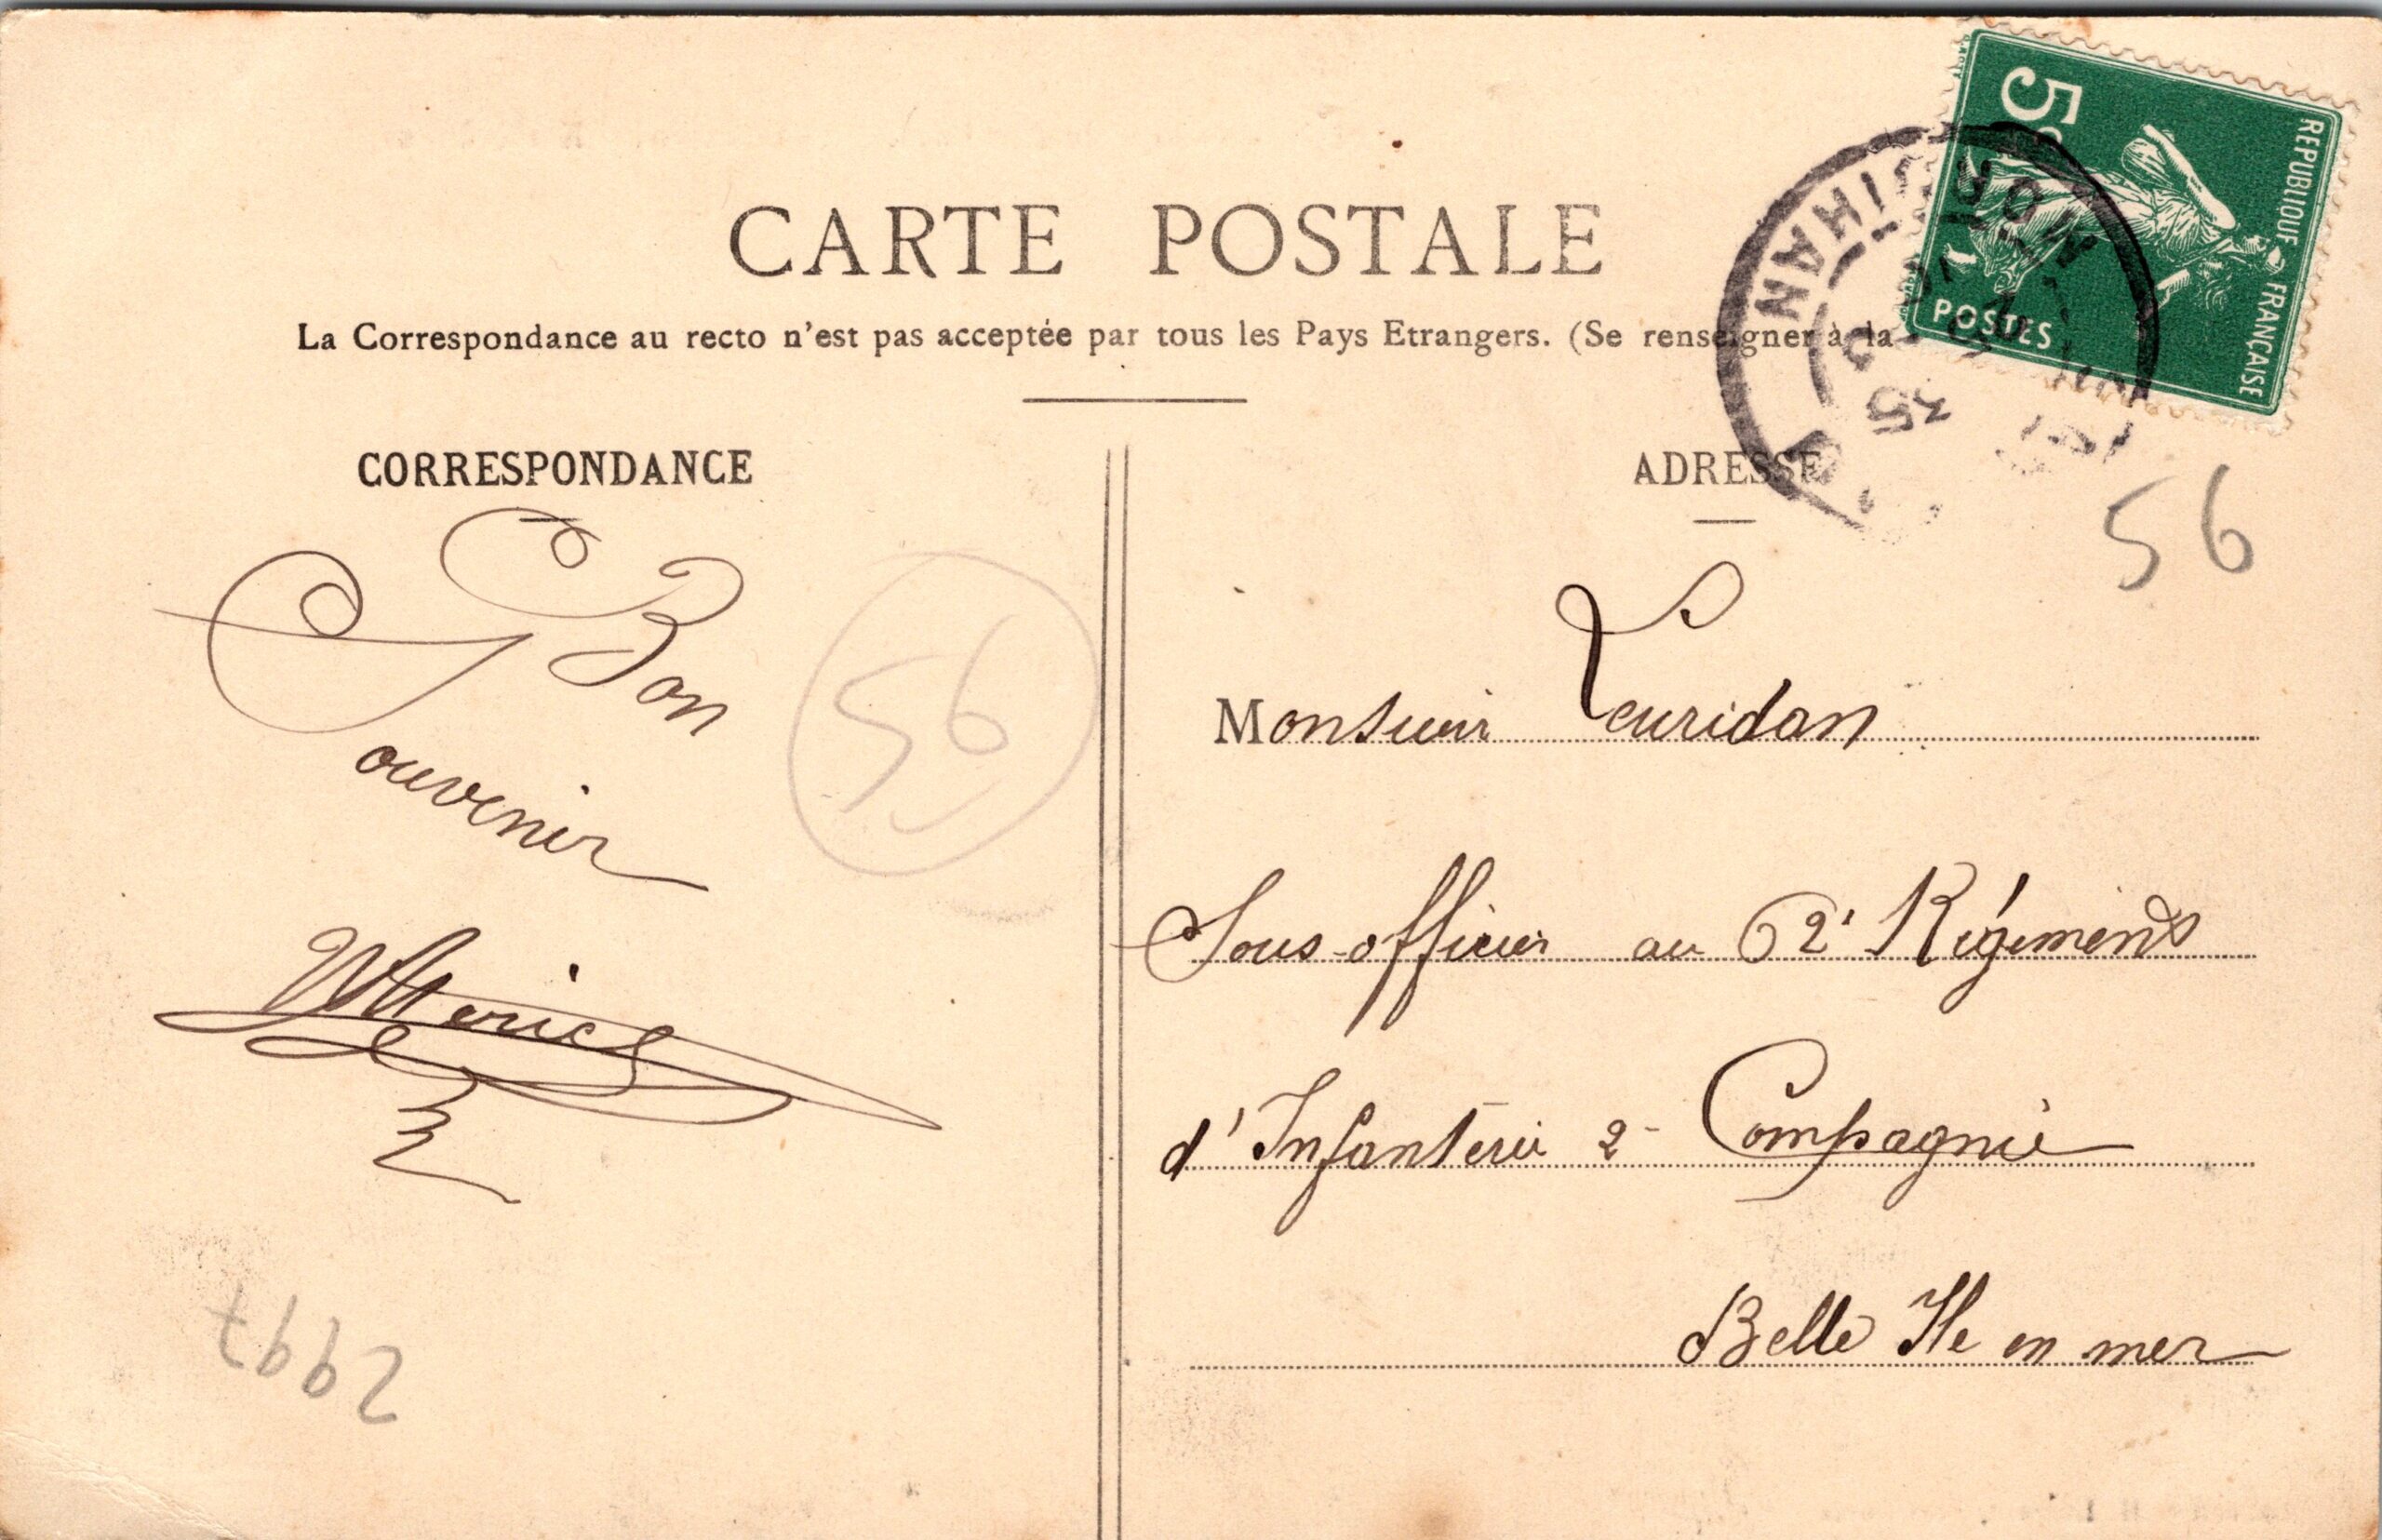 CARTE POSTALE
La Correspondance au recto n'est pas acceptée par tous les Pays Etrangers. (Se renseigner à la
5c
REPUBLIQUE FRANÇAISE
POSTES
MORBIHAN
35
CORRESPONDANCE
ADRESSE
56
Bon
Souvenir
56
Monsieur Leuridan
Sous-officier au 62e Régiment
d'Infanterie 2e Compagnie
Belle Ile en mer
2997